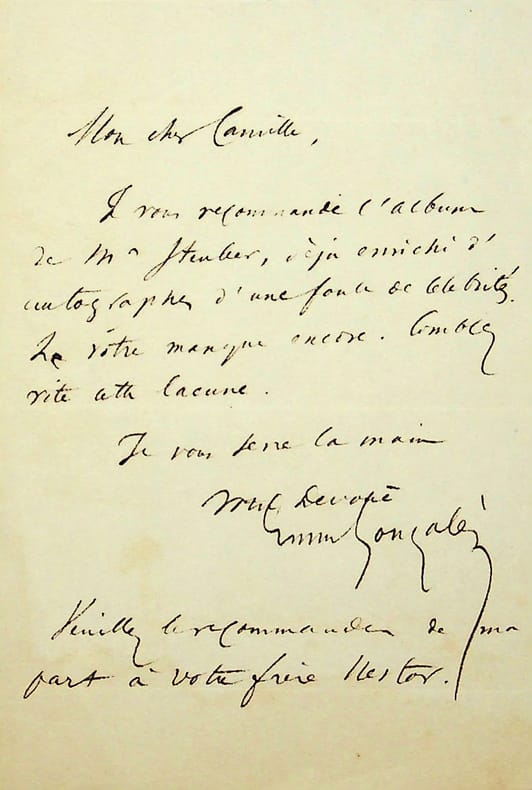 Mon cher Camille,
Je vous recommande l'album
de Mr Steuber, déjà enrichi d'
autographes d'une foule de célébrités.
Le vôtre manque encore. Comblez
vite cette lacune.
Je vous serre la main
votre dévoué
Emm Gonzalès
Veuillez le recommander de ma
part à votre frère Nestor.